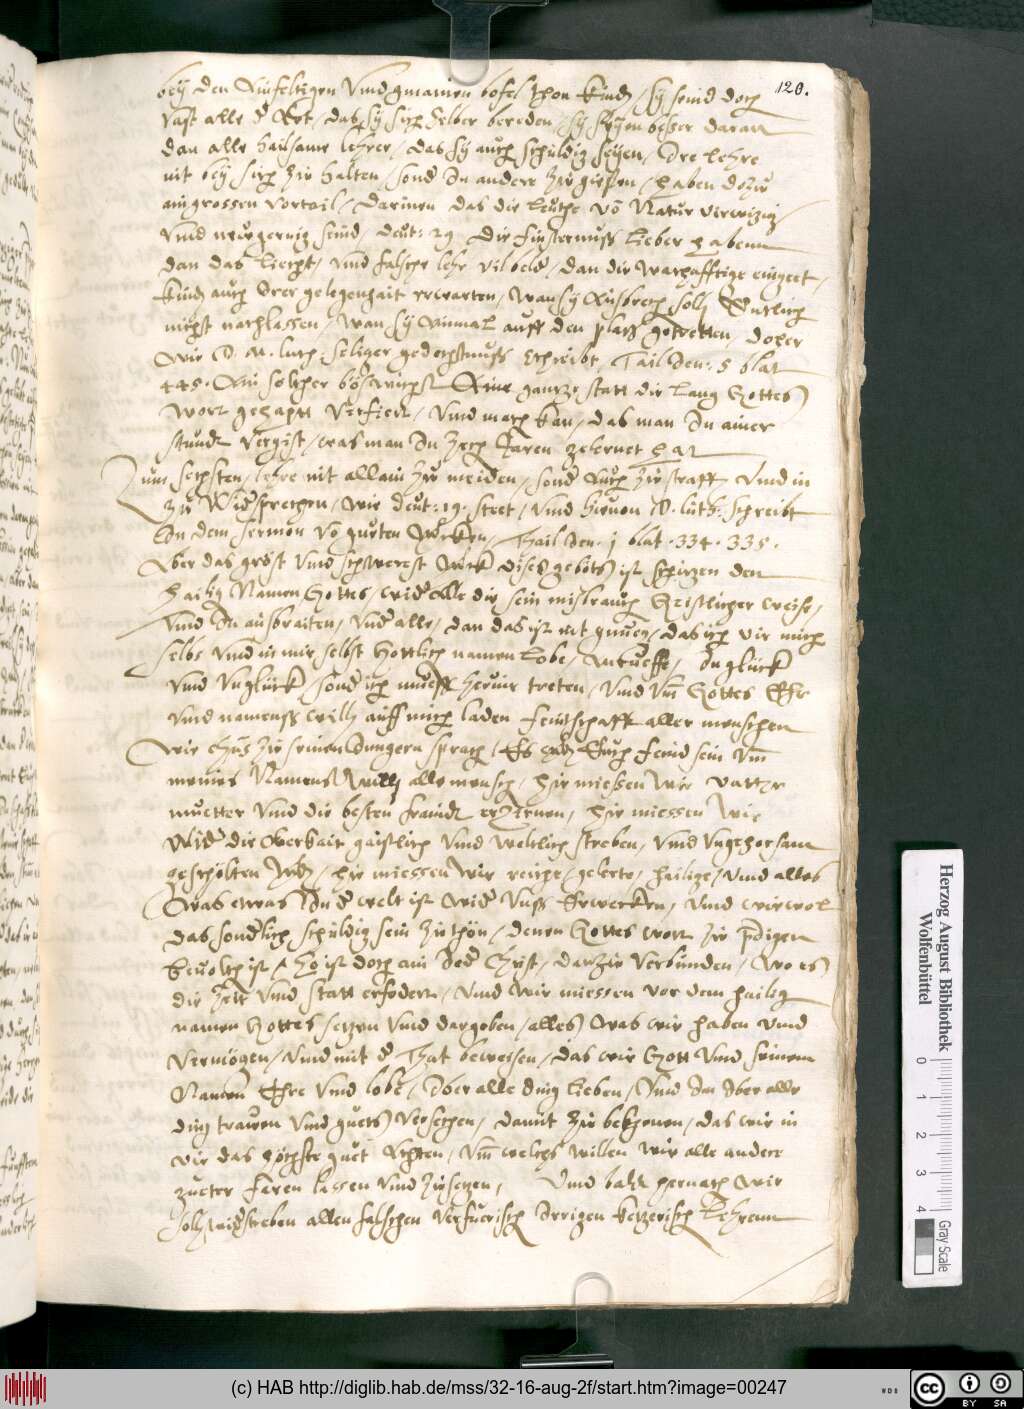 120.
bey den Ainfeltigen Vnd gmainen bofel thon kind, sy seind doch
Vast alle d Art, das sy sich selber bereden, sy seyen besser daran
dan alle hailsame lehrer, das sy auch schuldig seyen, Jre lehre
nit bey sich zu halten, sond Jn andere zugiessen, haben dozů
ain grossen vortail, darinen das die leuthe võ Natur verwizig,
Vnnd neugernig seind, deut: 29. die finsternuss lieber haben
dan das liecht, vnd falsche lehr vil belder, dan die warhafftige eingeet,
kind auch Jrer gelegenhait erwarten, wan sy Ausbrech soll Entlich
nichst nachlassen, wan sy Ainmal auff den platz getretten, doher
wie D. M. luth. seliger gedechtnuss schreibt, Tail Jen: 5 blat
445. Ain solcher bösswichst Aine gantze statt die lang Gottes
wort gehaptt verfiert, Vnnd mach kan, das man Jn ainer
stund vergist, was man Jn zech Jaren gelernet hat
Zum sechsten, lehre nit allain zu meiden, sond Auch zu straff Vnd in
zu Widsprechen, wie deut: 19. steet, Vnnd hieuon D. luth. schreibt
Jn dem sermon võ guten Wercken, Thail Jen. j blat .334. 335.
Aber das gröst Vnnd schwerest werk dises gebots ist schizen den
Hailig Namen Gottes, wid alle die sein misbrauch Geistlicher weise,
Vnnd Jn ausbraiten, Vnd alle, dan das ist nit gnueg, das ich vir mich
selbs Vnnd in mir selbst Gottlich namen lobe, anrueffe, Jn glück
Vnnd Vnglück, sond ich muess heruir treten, Vnnd Vm Gottes Ehr
Vnnd namenss will auff mich laden feindschafft aller menschen
Wie Chüs zu seinen Jungern sprach, Es werd Euch feind sein Vm
meines Namens will alle mensch, hie miessen wir vatter
muetter Vnnd die besten fraindt erzirnen, hie miessen wir
Wid die Oberkait gaistlich Vnnd weltlich streben, Vnnd Vngehorsam
gescholten werd, hie miessen wir reiche, gelerte, hailige, Vnnd alles
was etwas Jn d welt ist wid Vnss Erwecken, Vnnd wiewol
das sondlich schuldig sein zu thon, denen Gottes wort zu pdigen
beuolch ist, so ist doch ain Jed Christ, darzu verbunden, wo es
die Zeit Vnnd statt erfodert, Vnnd wir miessen vor dem hailig
namen Gottes setzen Vnnd dargeben, alles was wir haben Vnnd
vermögen, Vnnd mit d That beweisen, das wir Gott Vnnd seinem
Namen Ehre Vnnd lobe, Jber alle ding lieben, Vnnd Jn Jber alle
ding trawen Vnnd guets versechen, damit zu bekhenen, das wir in
vir das höchste guet Achten, Vm welchs willen wir alle andere
gueter faren lassen Vnnd zusetzen, Vnnd balt hernach wir
soll widstreben allen falschen verfuerisch Jrrigen ketzerisch Lehrenn
Herzog August Bibliothek
Wolfenbüttel
0 1 2 3 4
Gray Scale
(c) HAB http://diglib.hab.de/mss/32-16-aug-2f/start.htm?image=00247
WDB
cc BY SA